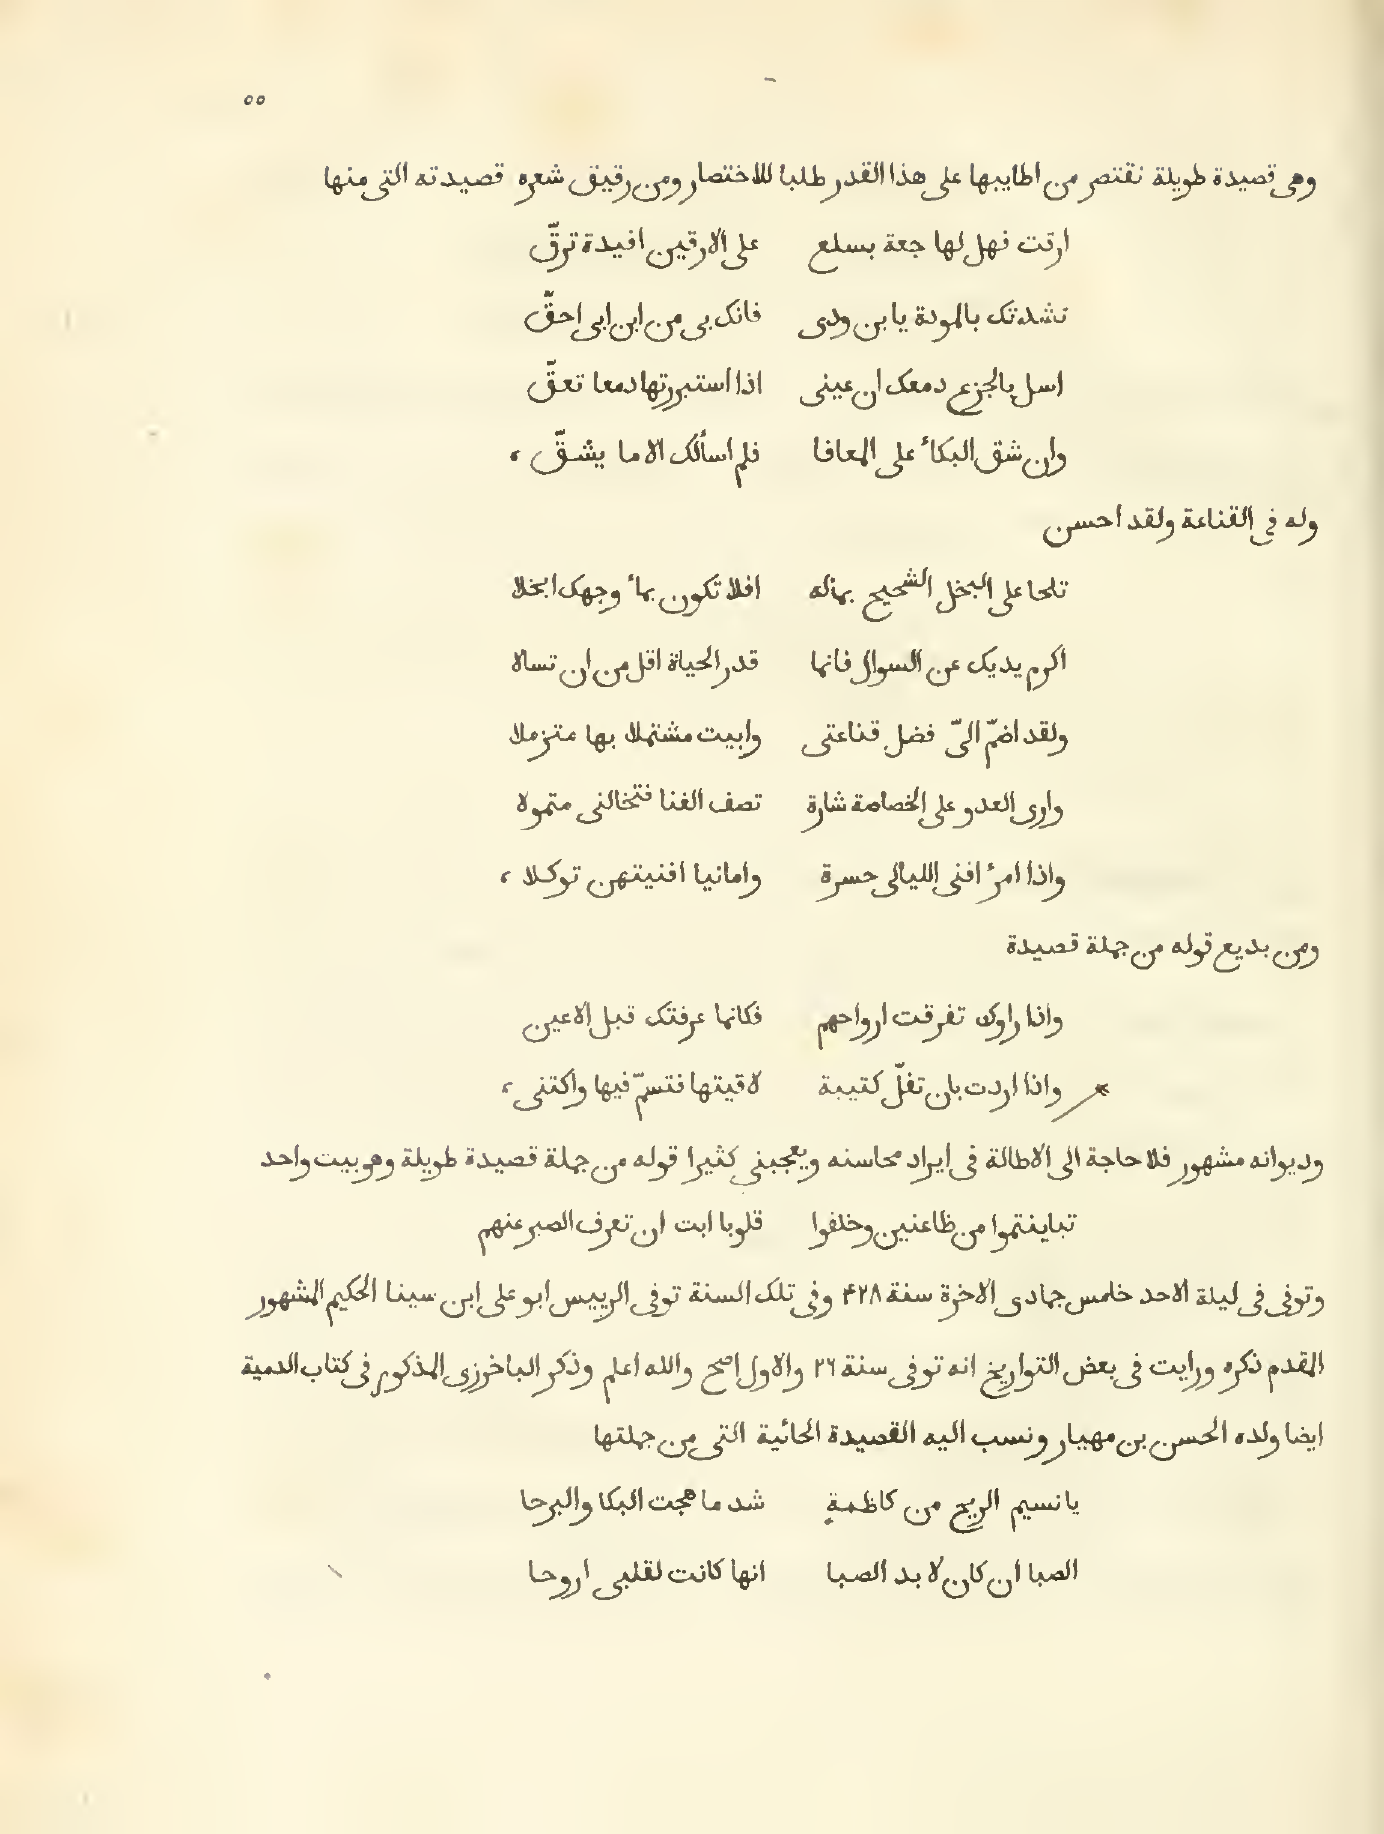 ٥٥
وهى قصيدة طويلة نقتصر من اطايبها على هذا القدر طلبا للاختصار ومن رقيق شعره قصيدته التى منها
ارقت فهل لها جعة بسلع على الارقين افيدة ترقّ
نشدتك بالمودة يا بن ودى فانك بى من ابن ابى احقّ
اسل بالجزع دمعك ان عينى اذا استبررتها دمعا تعقّ
وان شق البكاء على المعافا فلم اسألك الا ما يشقّ
وله فى القناعة ولقد احسن
تلحا على البخل الشحيح بماله افلا تكون بماء وجهك ابخلا
اكرم يديك عن السوال فانما قدر الحياة اقل من ان تسالا
ولقد اضمّ الىّ فضل قناعتى وابيت مشتملا بها متزملا
وارى العدو على الخصاصة شارة تصف الغنا فتخالنى متمولا
واذا امرء افنى الليالى حسرة وامانيا افنيتهن توكلا
ومن بديع قوله من جملة قصيدة
واذا راوك تفرقت ارواحهم فكانما عرفتك قبل الاعين
واذا اردت بان تفلّ كتيبة لاقيتها فتسمّ فيها واكتنى
وديوانه مشهور فلا حاجة الى الاطالة فى ايراد محاسنه ويعجبنى كثيرا قوله من جملة قصيدة طويلة وهو بيت واحد
تباينتموا من ظاعنين وخلفوا قلوبا ابت ان تعرف الصبر عنهم
وتوفى فى ليلة الاحد خامس جمادى الاخرة سنة ۴۲۸ وفى تلك السنة توفى الرييس ابو على ابن سينا الحكيم المشهور
المقدم ذكره ورايت فى بعض التواريخ انه توفى سنة ٢٦ والاول اصح والله اعلم وذكر الباخرزى المذكور فى كتاب الدمية
ايضا ولده الحسن بن مهيار ونسب اليه القصيدة الحائية التى من جملتها
يا نسيم الريح من كاظمةٍ شد ما هجت البكا والبرحا
الصبا ان كان لا بد الصبا انها كانت لقلبى اروحا